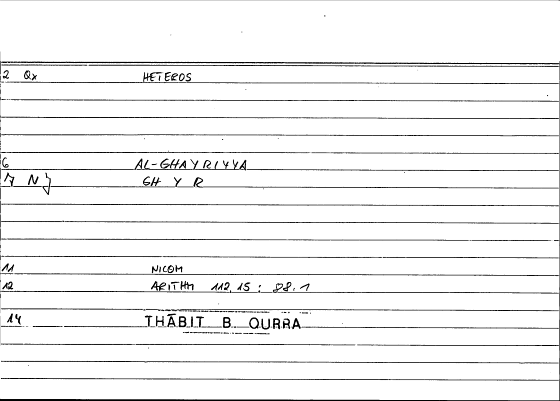 2 Qx HETEROS
6 AL-GHAYRIYYA
7 N GH Y R
11 NICOM
12 ARITHM 112.15 : 88.1
14 THĀBIT B. QURRA